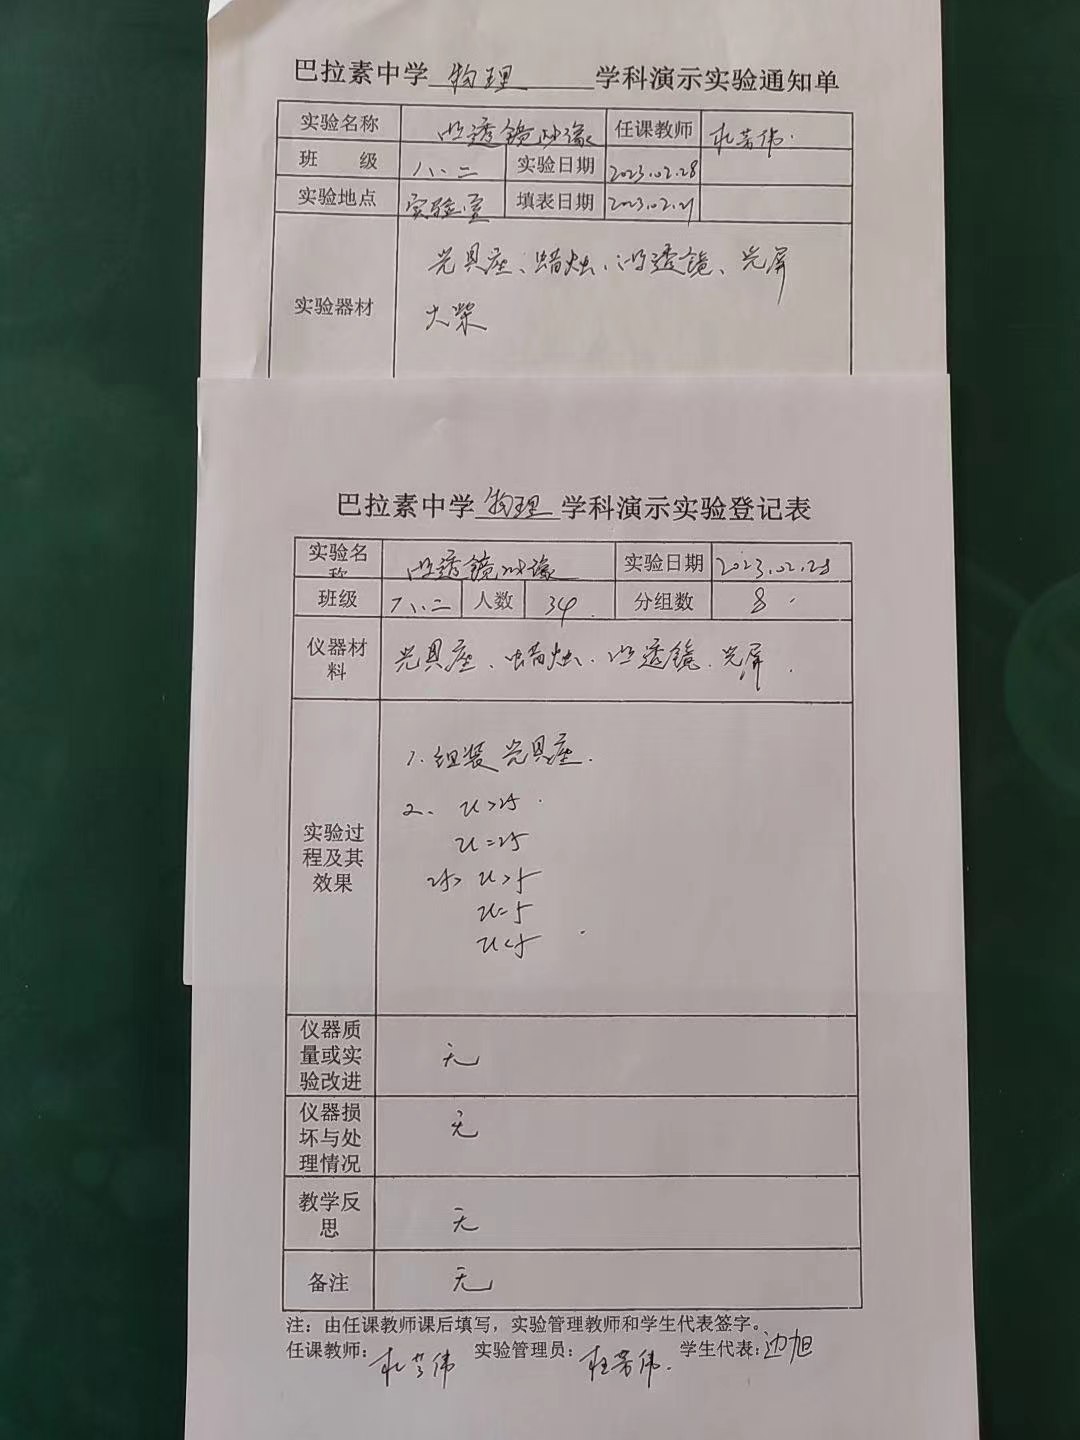 巴拉素中学 物理 学科演示实验通知单
实验名称 凸透镜成像 任课教师 杜芳伟
班 级 八、二 实验日期 2023.02.28
实验地点 实验室 填表日期 2023.02.21
实验器材 光具座、蜡烛、凸透镜、光屏
火柴
巴拉素中学 物理 学科演示实验登记表
实验名称 凸透镜成像 实验日期 2023.02.28
班级 八、二 人数 34. 分组数 8
仪器材料 光具座、蜡烛、凸透镜、光屏.
实验过程及其效果
1. 组装光具座.
2、 u>2f.
u=2f
2f>u>f
u=f
u<f
仪器质量或实验改进 无
仪器损坏与处理情况 无
教学反思 无
备注 无
注：由任课教师课后填写，实验管理教师和学生代表签字。
任课教师: 杜芳伟 实验管理员: 杜芳伟. 学生代表: 边旭